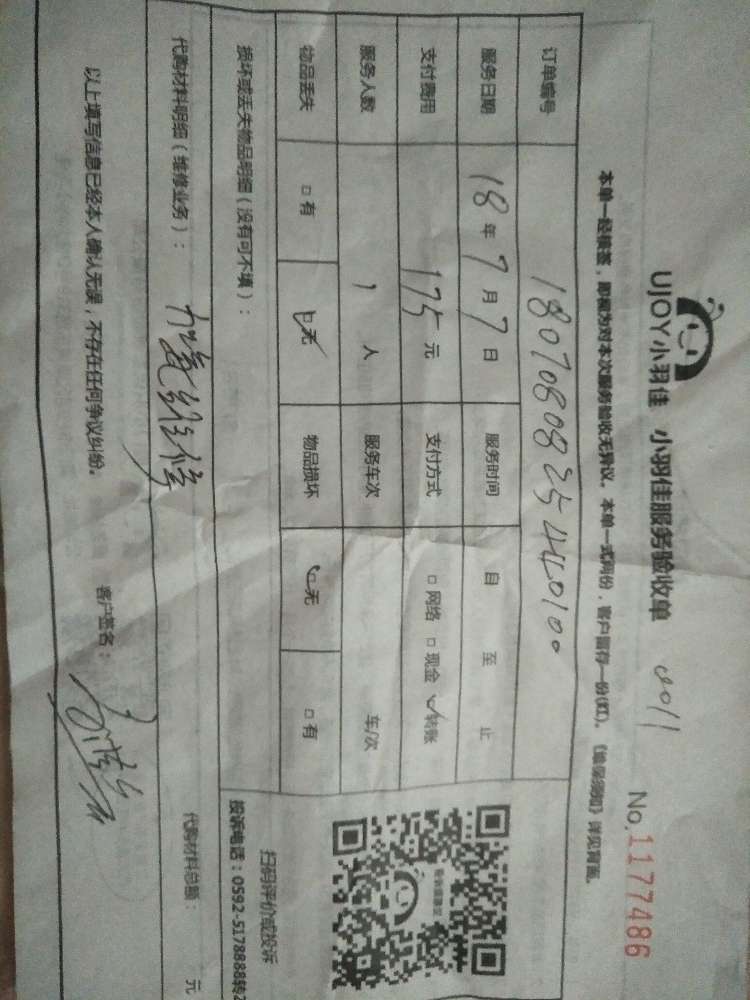 UJOY小羽佳 小羽佳服务验收单 No.1177486
本单一经核签,即视为对本次服务验收无异议。本单一式两份,客户留存一份(红)。
订单编号
服务日期 18年7月7日 服务时间 自 至 止
支付费用 175元 支付方式 □网络 □现金 ✓转账
服务人数 1人 服务车次 车/次
物品丢失 □有 ☑无 物品损坏 ☑无 □有
损坏或丢失物品明细(没有可不填):
代购材料明细(维修业务): 维修 代购材料总额: 元
以上填写信息已经本人确认无误,不存在任何争议纠纷。
客户签名:
扫码评价或投诉
投诉电话:0592-5178888转2